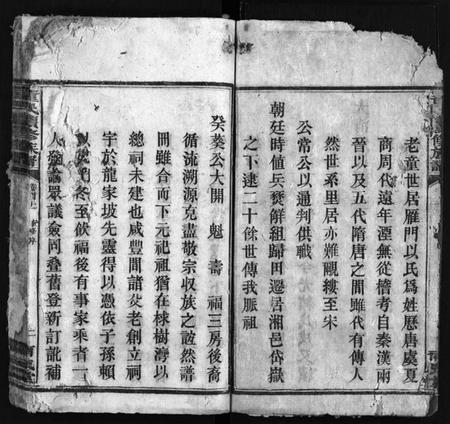 老童世居雁門以氏爲姓歷唐虞夏
商周代遠年湮無從稽考自秦漢兩
晉以及五代隋唐之間雖代有傳人
然世系里居亦難覼縷至宋
公常公以通判供職
朝廷時值兵燹解組歸田遷居湘邑岱嶽
之下逮二十餘世傳我脈祖
癸葵公大開 魁 壽 福三房後裔
循流溯源克盡敬宗收族之誼然譜
冊雖合而下元祀祖猶在棟樹灣以
總祠未建也咸豐間諸父老創立祠
宇於龍家坡先靈得以憑依子孫賴
以 冬至飲福後有事家乘者一
人 論眾議僉同叠舊登新訂訛補